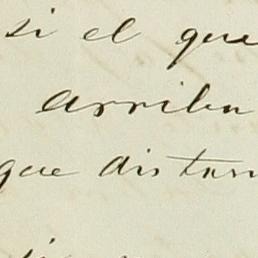 si el que
arriba
que dis